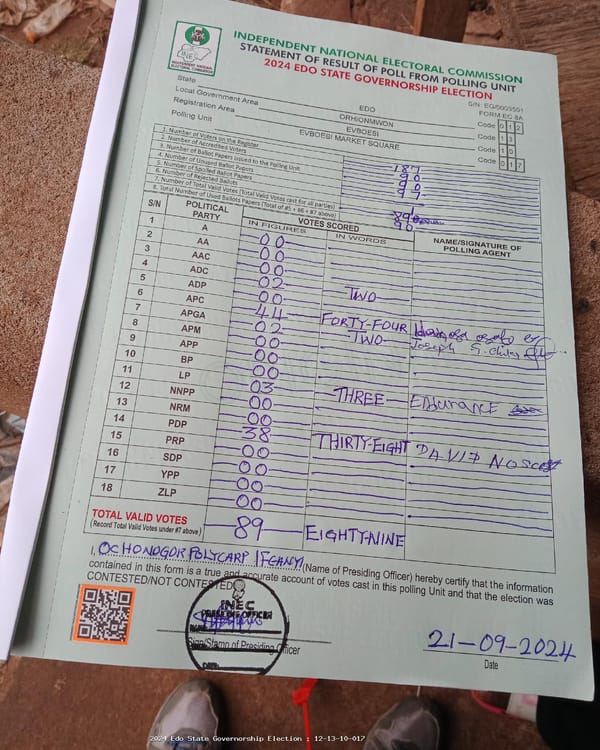 INEC
INDEPENDENT NATIONAL ELECTORAL COMMISSION
INDEPENDENT NATIONAL ELECTORAL COMMISSION
STATEMENT OF RESULT OF POLL FROM POLLING UNIT
2024 EDO STATE GOVERNORSHIP ELECTION
S/N: EG/0003501
FORM EC 8A
State EDO Code 0 1 2
Local Government Area ORHIONMWON Code 1 3
Registration Area EVBOESI Code 1 0
Polling Unit EVBOESI MARKET SQUARE Code 0 1 7
1. Number of Voters on the Register 187
2. Number of Accredited Voters 90
3. Number of Ballot Papers Issued to the Polling Unit 90
4. Number of Unused Ballot Papers 97
5. Number of Spoiled Ballot Papers
6. Number of Rejected Ballots
7. Number of Total Valid Votes (Total Valid Votes cast for all parties) 89
8. Total Number of Used Ballots Papers (Total of #5 + #6 + #7 above) 90
S/N POLITICAL PARTY VOTES SCORED NAME/SIGNATURE OF POLLING AGENT
IN FIGURES IN WORDS
1 A 00
2 AA 00
3 AAC 00
4 ADC 02 TWO
5 ADP 00
6 APC 44 FORTY-FOUR
7 APGA 02 TWO Joseph G.
8 APM 00
9 APP 00
10 BP 00
11 LP 03 THREE ENDURANCE
12 NNPP 00
13 NRM 00
14 PDP 38 THIRTY-EIGHT DAVID
15 PRP 00
16 SDP 00
17 YPP 00
18 ZLP 00
TOTAL VALID VOTES 89 EIGHTY-NINE
(Record Total Valid Votes under #7 above)
I, OCHONOGOR POLYCARP IFEANYI (Name of Presiding Officer) hereby certify that the information
contained in this form is a true and accurate account of votes cast in this polling Unit and that the election was
CONTESTED/NOT CONTESTED
INEC
PRESIDING OFFICER
Sign/Stamp of Presiding Officer
DATE
21-09-2024
Date
2024 Edo State Governorship Election : 12-13-10-017